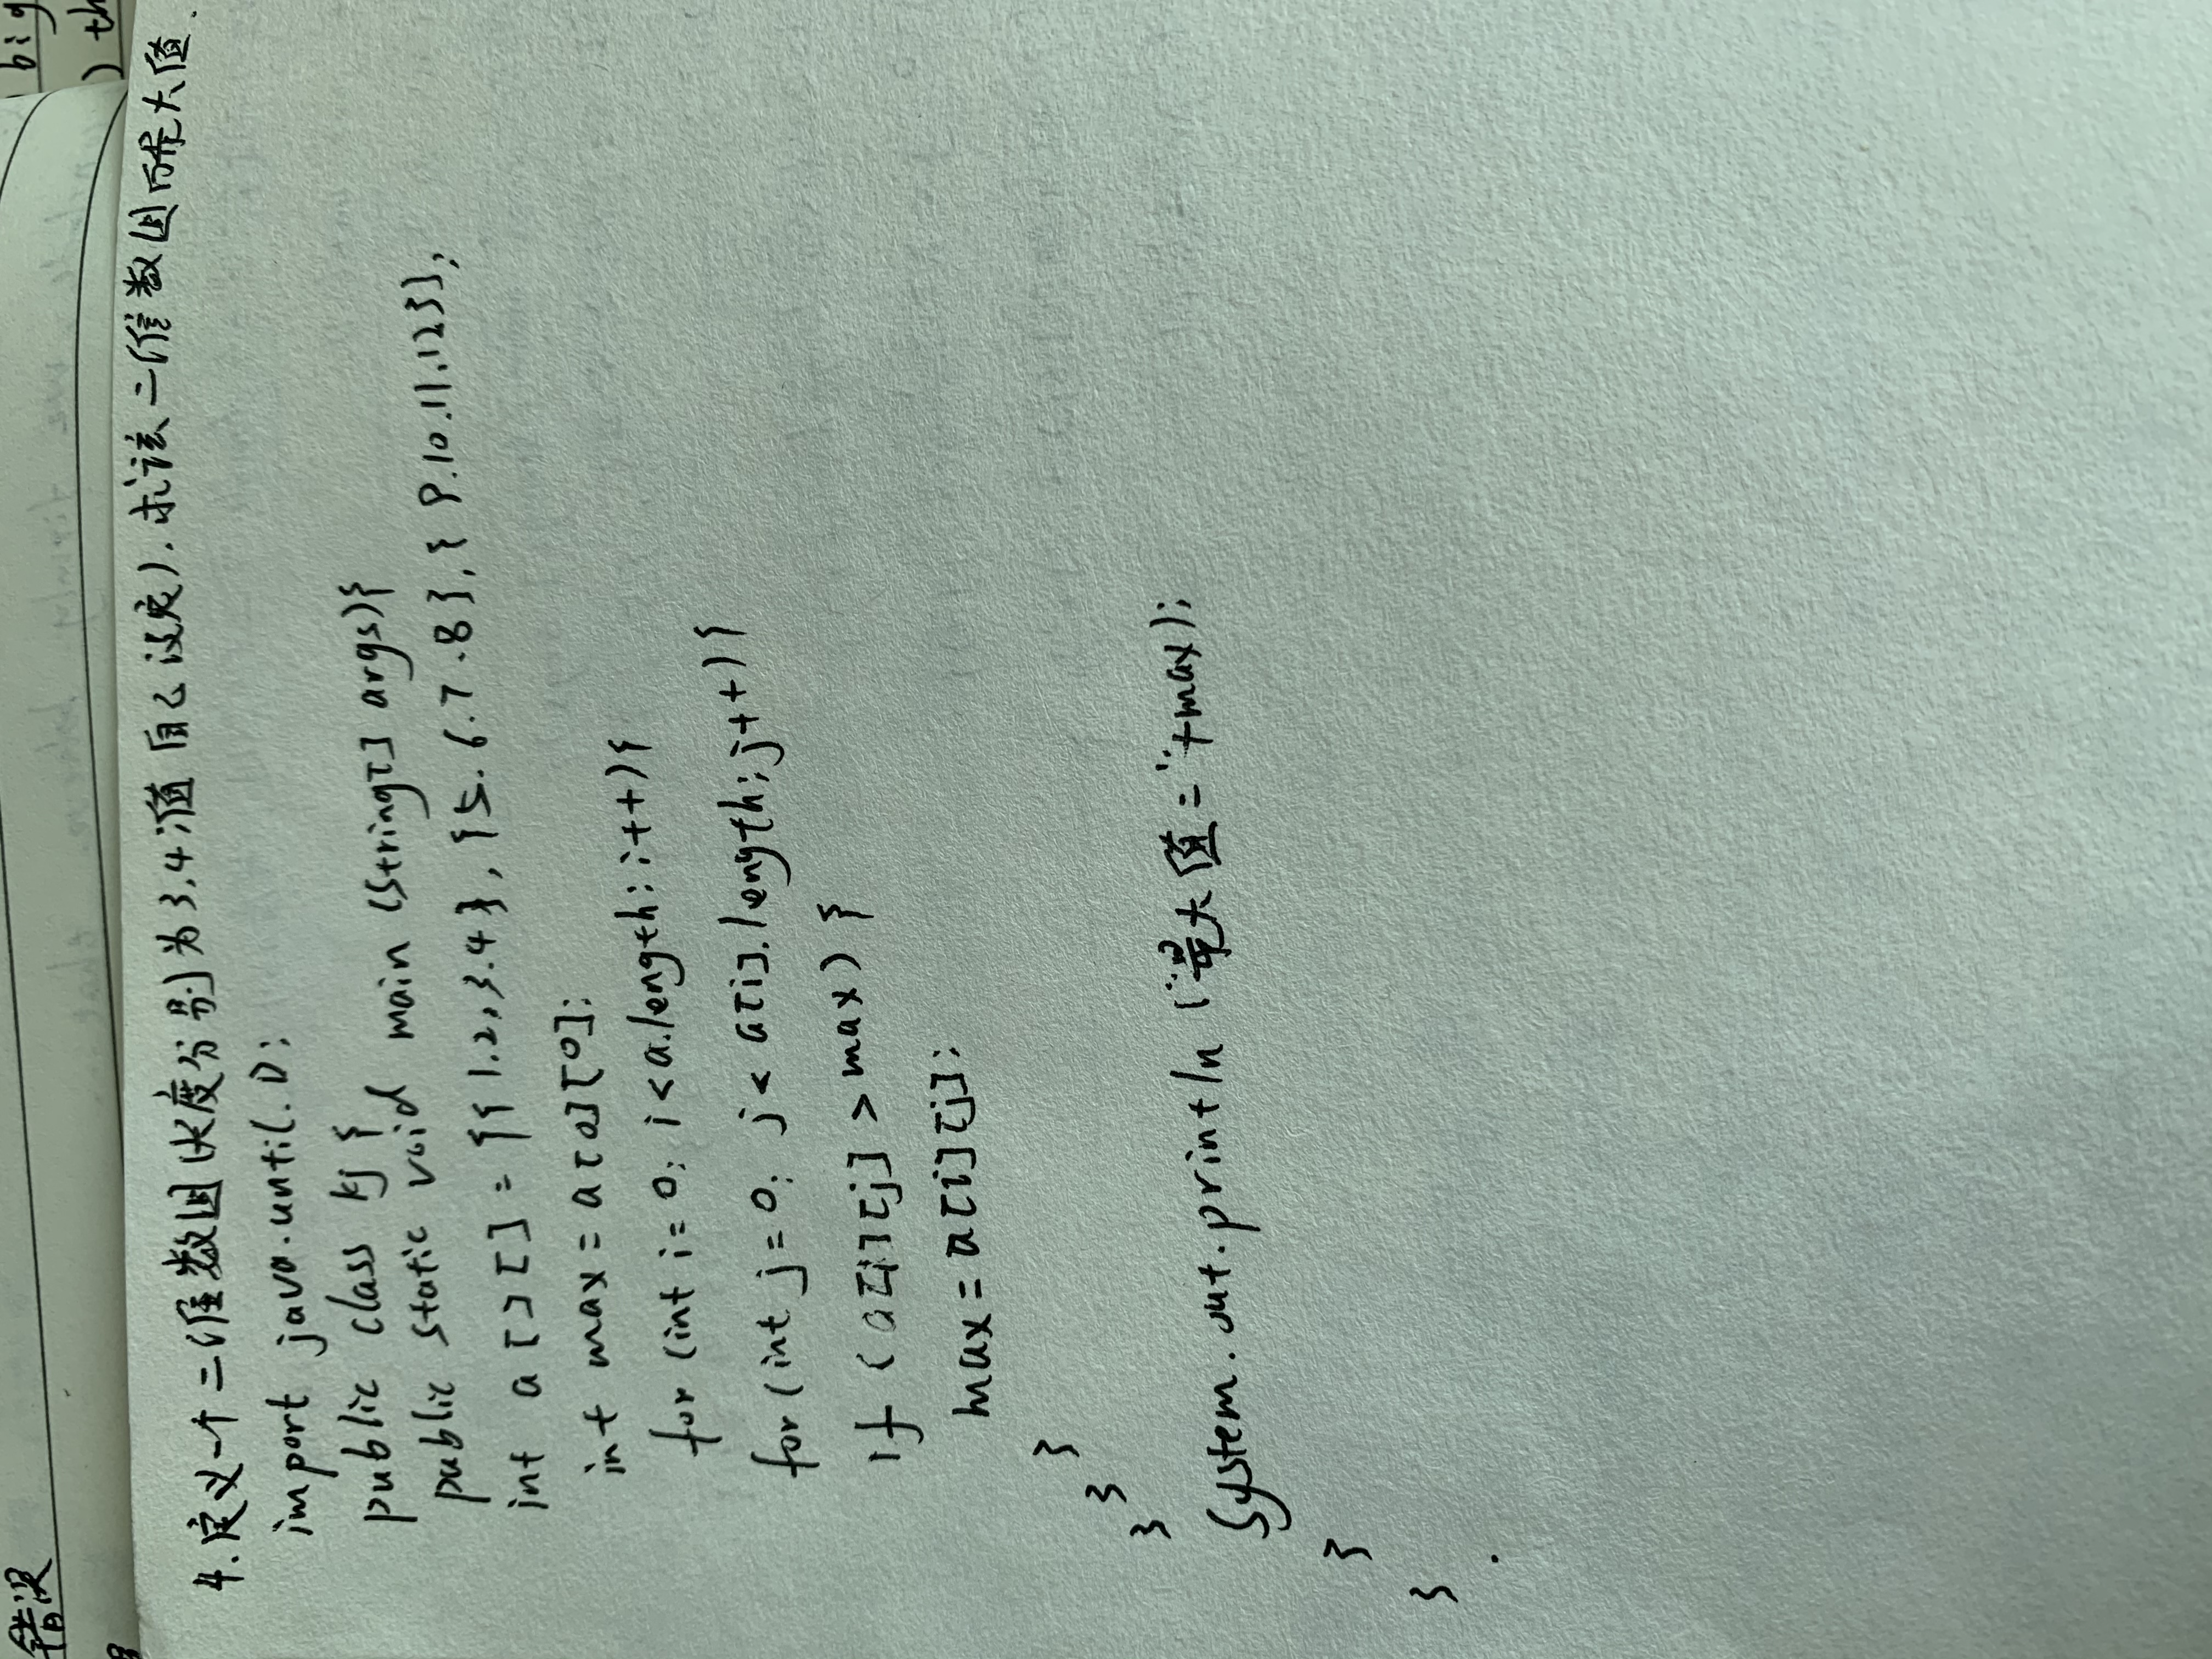 错误
big
) th
4.定义一个二维数组(长度分别为3,4,值自己设定),求该二维数组的最大值.
import java.until.D;
public class kj{
public static void main (String[] args){
int a[][]={{1,2,3.4},{5.6.7.8},{9.10.11.12}};
int max=a[0][0];
for(int i=0;i<a.length;i++){
for(int j=0;j<a[i].length;j++){
if (a[i][j]>max){
max=a[i][j];
}
}
}
System.out.println("最大值="+max);
}
}